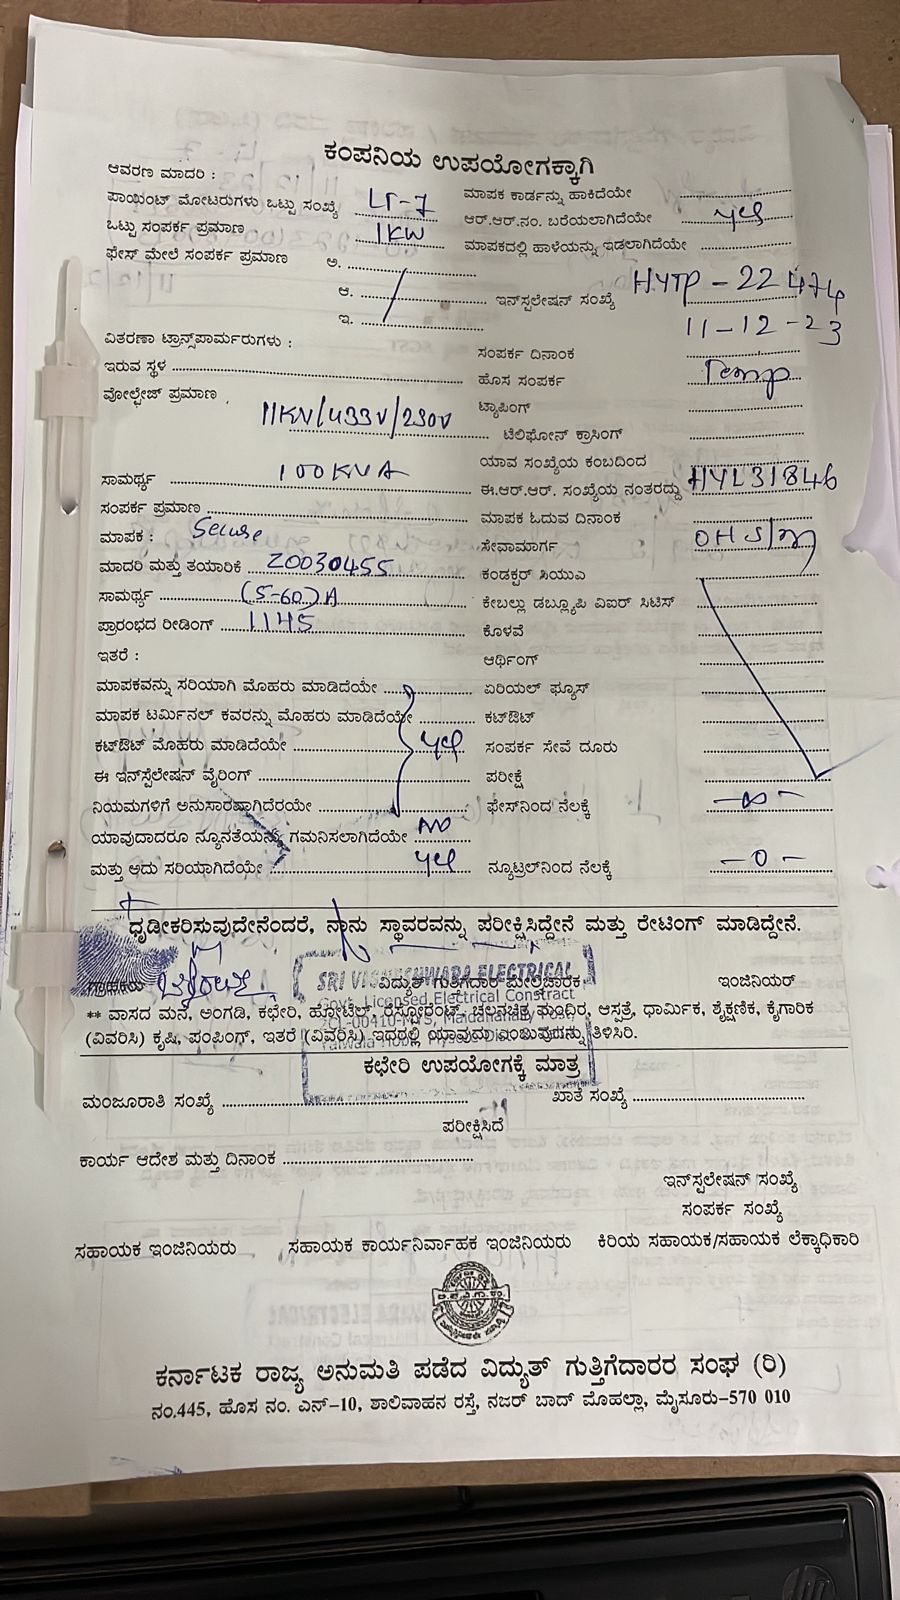 ಕಂಪನಿಯ ಉಪಯೋಗಕ್ಕಾಗಿ
ಆವರಣ ಮಾದರಿ :
ಮಾಪಕ ಕಾರ್ಡನ್ನು ಹಾಕಿದೆಯೇ
ಪಾಯಿಂಟ್ ಮೋಟರುಗಳು ಒಟ್ಟು ಸಂಖ್ಯೆ LT-7
ಆರ್.ಆರ್.ನಂ. ಬರೆಯಲಾಗಿದೆಯೇ yes
ಒಟ್ಟು ಸಂಪರ್ಕ ಪ್ರಮಾಣ 1KW
ಮಾಪಕದಲ್ಲಿ ಹಾಳೆಯನ್ನು ಇಡಲಾಗಿದೆಯೇ
ಫೇಸ್ ಮೇಲೆ ಸಂಪರ್ಕ ಪ್ರಮಾಣ ಅ.
ಆ.
ಇನ್‌ಸ್ಟಲೇಷನ್ ಸಂಖ್ಯೆ HYTP-22474
ಇ.
11-12-23
ವಿತರಣಾ ಟ್ರಾನ್ಸ್‌ಪಾರ್ಮರುಗಳು :
ಸಂಪರ್ಕ ದಿನಾಂಕ
ಇರುವ ಸ್ಥಳ
ಹೊಸ ಸಂಪರ್ಕ Temp
ವೋಲ್ಟೇಜ್ ಪ್ರಮಾಣ 11KV/433V/230V
ಟ್ಯಾಪಿಂಗ್
ಟೆಲಿಫೋನ್ ಕ್ರಾಸಿಂಗ್
ಯಾವ ಸಂಖ್ಯೆಯ ಕಂಬದಿಂದ
ಸಾಮರ್ಥ್ಯ 100KVA
ಈ.ಆರ್.ಆರ್. ಸಂಖ್ಯೆಯ ನಂತರದ್ದು HYL31846
ಸಂಪರ್ಕ ಪ್ರಮಾಣ
ಮಾಪಕ ಓದುವ ದಿನಾಂಕ
ಮಾಪಕ : Secure
ಸೇವಾಮಾರ್ಗ OHS/
ಮಾದರಿ ಮತ್ತು ತಯಾರಿಕೆ 20030455
ಕಂಡಕ್ಟರ್ ಸಿಯುಎ
ಸಾಮರ್ಥ್ಯ (5-60)A
ಕೇಬಲ್ಲು ಡಬ್ಲ್ಯೂಪಿ ವಿಐಆರ್ ಸಿಟಿಸ್
ಪ್ರಾರಂಭದ ರೀಡಿಂಗ್ 1145
ಕೊಳವೆ
ಇತರೆ :
ಆರ್ಥಿಂಗ್
ಮಾಪಕವನ್ನು ಸರಿಯಾಗಿ ಮೊಹರು ಮಾಡಿದೆಯೇ
ಏರಿಯಲ್ ಫ್ಯೂಸ್
ಮಾಪಕ ಟರ್ಮಿನಲ್ ಕವರನ್ನು ಮೊಹರು ಮಾಡಿದೆಯೇ
ಕಟ್‌ಔಟ್
ಕಟ್‌ಔಟ್ ಮೊಹರು ಮಾಡಿದೆಯೇ yes
ಸಂಪರ್ಕ ಸೇವೆ ದೂರು
ಈ ಇನ್‌ಸ್ಟೆಲೇಷನ್ ವೈರಿಂಗ್
ಪರೀಕ್ಷೆ
ನಿಯಮಗಳಿಗೆ ಅನುಸಾರವಾಗಿದೆರಯೇ
ಫೇಸ್‌ನಿಂದ ನೆಲಕ್ಕೆ -∞-
ಯಾವುದಾದರೂ ನ್ಯೂನತೆಯನ್ನು ಗಮನಿಸಲಾಗಿದೆಯೇ NO
ಮತ್ತು ಅದು ಸರಿಯಾಗಿದೆಯೇ yes
ನ್ಯೂಟ್ರಲ್‌ನಿಂದ ನೆಲಕ್ಕೆ -0-
ಧೃಡೀಕರಿಸುವುದೇನೆಂದರೆ, ನಾನು ಸ್ಥಾವರವನ್ನು ಪರೀಕ್ಷಿಸಿದ್ದೇನೆ ಮತ್ತು ರೇಟಿಂಗ್ ಮಾಡಿದ್ದೇನೆ.
SRI VIGHNESHWARA ELECTRICAL
ವಿದ್ಯುತ್ ಗುತ್ತಿಗೆದಾರ ಮೇಲ್ವಿಚಾರಕ
ಇಂಜಿನಿಯರ್
Govt. Licensed Electrical Contract
** ವಾಸದ ಮನೆ, ಅಂಗಡಿ, ಕಛೇರಿ, ಹೋಟೆಲ್, ರೆಸ್ಟೋರೆಂಟ್, ಚಲನಚಿತ್ರ ಮಂದಿರ, ಆಸ್ಪತ್ರೆ, ಧಾರ್ಮಿಕ, ಶೈಕ್ಷಣಿಕ, ಕೈಗಾರಿಕ
(ವಿವರಿಸಿ) ಕೃಷಿ, ಪಂಪಿಂಗ್, ಇತರೆ (ವಿವರಿಸಿ) ಇದರಲ್ಲಿ ಯಾವುದು ಎಂಬುವುದನ್ನು ತಿಳಿಸಿರಿ.
ಕಛೇರಿ ಉಪಯೋಗಕ್ಕೆ ಮಾತ್ರ
ಮಂಜೂರಾತಿ ಸಂಖ್ಯೆ
ಖಾತೆ ಸಂಖ್ಯೆ
ಪರೀಕ್ಷಿಸಿದೆ
ಕಾರ್ಯ ಆದೇಶ ಮತ್ತು ದಿನಾಂಕ
ಇನ್‌ಸ್ಪಲೇಷನ್ ಸಂಖ್ಯೆ
ಸಂಪರ್ಕ ಸಂಖ್ಯೆ
ಸಹಾಯಕ ಇಂಜಿನಿಯರು ಸಹಾಯಕ ಕಾರ್ಯನಿರ್ವಾಹಕ ಇಂಜಿನಿಯರು ಕಿರಿಯ ಸಹಾಯಕ/ಸಹಾಯಕ ಲೆಕ್ಕಾಧಿಕಾರಿ
ಕರ್ನಾಟಕ ರಾಜ್ಯ ಅನುಮತಿ ಪಡೆದ ವಿದ್ಯುತ್ ಗುತ್ತಿಗೆದಾರರ ಸಂಘ (ರಿ)
ನಂ.445, ಹೊಸ ನಂ. ಎನ್-10, ಶಾಲಿವಾಹನ ರಸ್ತೆ, ನಜರ್ ಬಾದ್ ಮೊಹಲ್ಲಾ, ಮೈಸೂರು-570 010